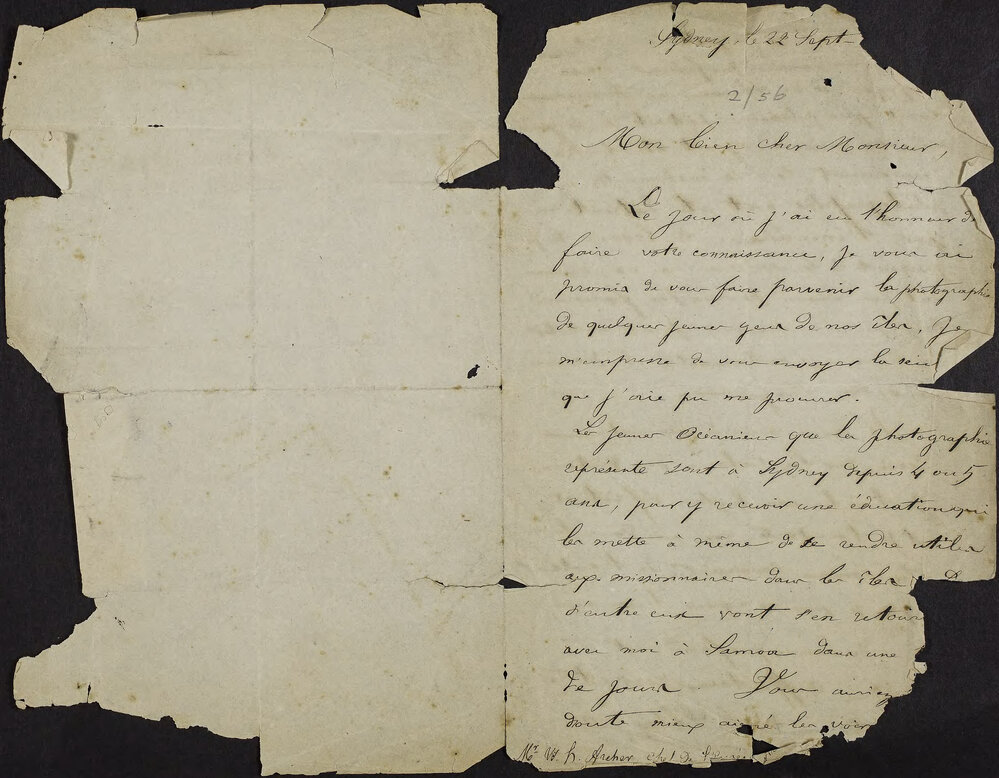 Sydney, le 22 Sept
2/56
Mon bien cher Monsieur,
Le jour où j'ai eu l'honneur de
faire votre connaissance, je vous ai
promis de vous faire parvenir la photographie
de quelques jeunes gens de nos îles. Je
m'empresse de vous envoyer la seul
que j'aie pu me procurer.
Les jeunes Océaniens que la photographie
représente sont à Sydney depuis 4 ou 5
ans, pour y recevoir une éducation qui
les mette à même de se rendre utiles
aux missionnaires dans les îles. D
d'entre eux vont s'en retour
avec moi à Samoa dans une
de jours. Vous auriez
doute mieux aimé les voir
Mr W. H. Archer